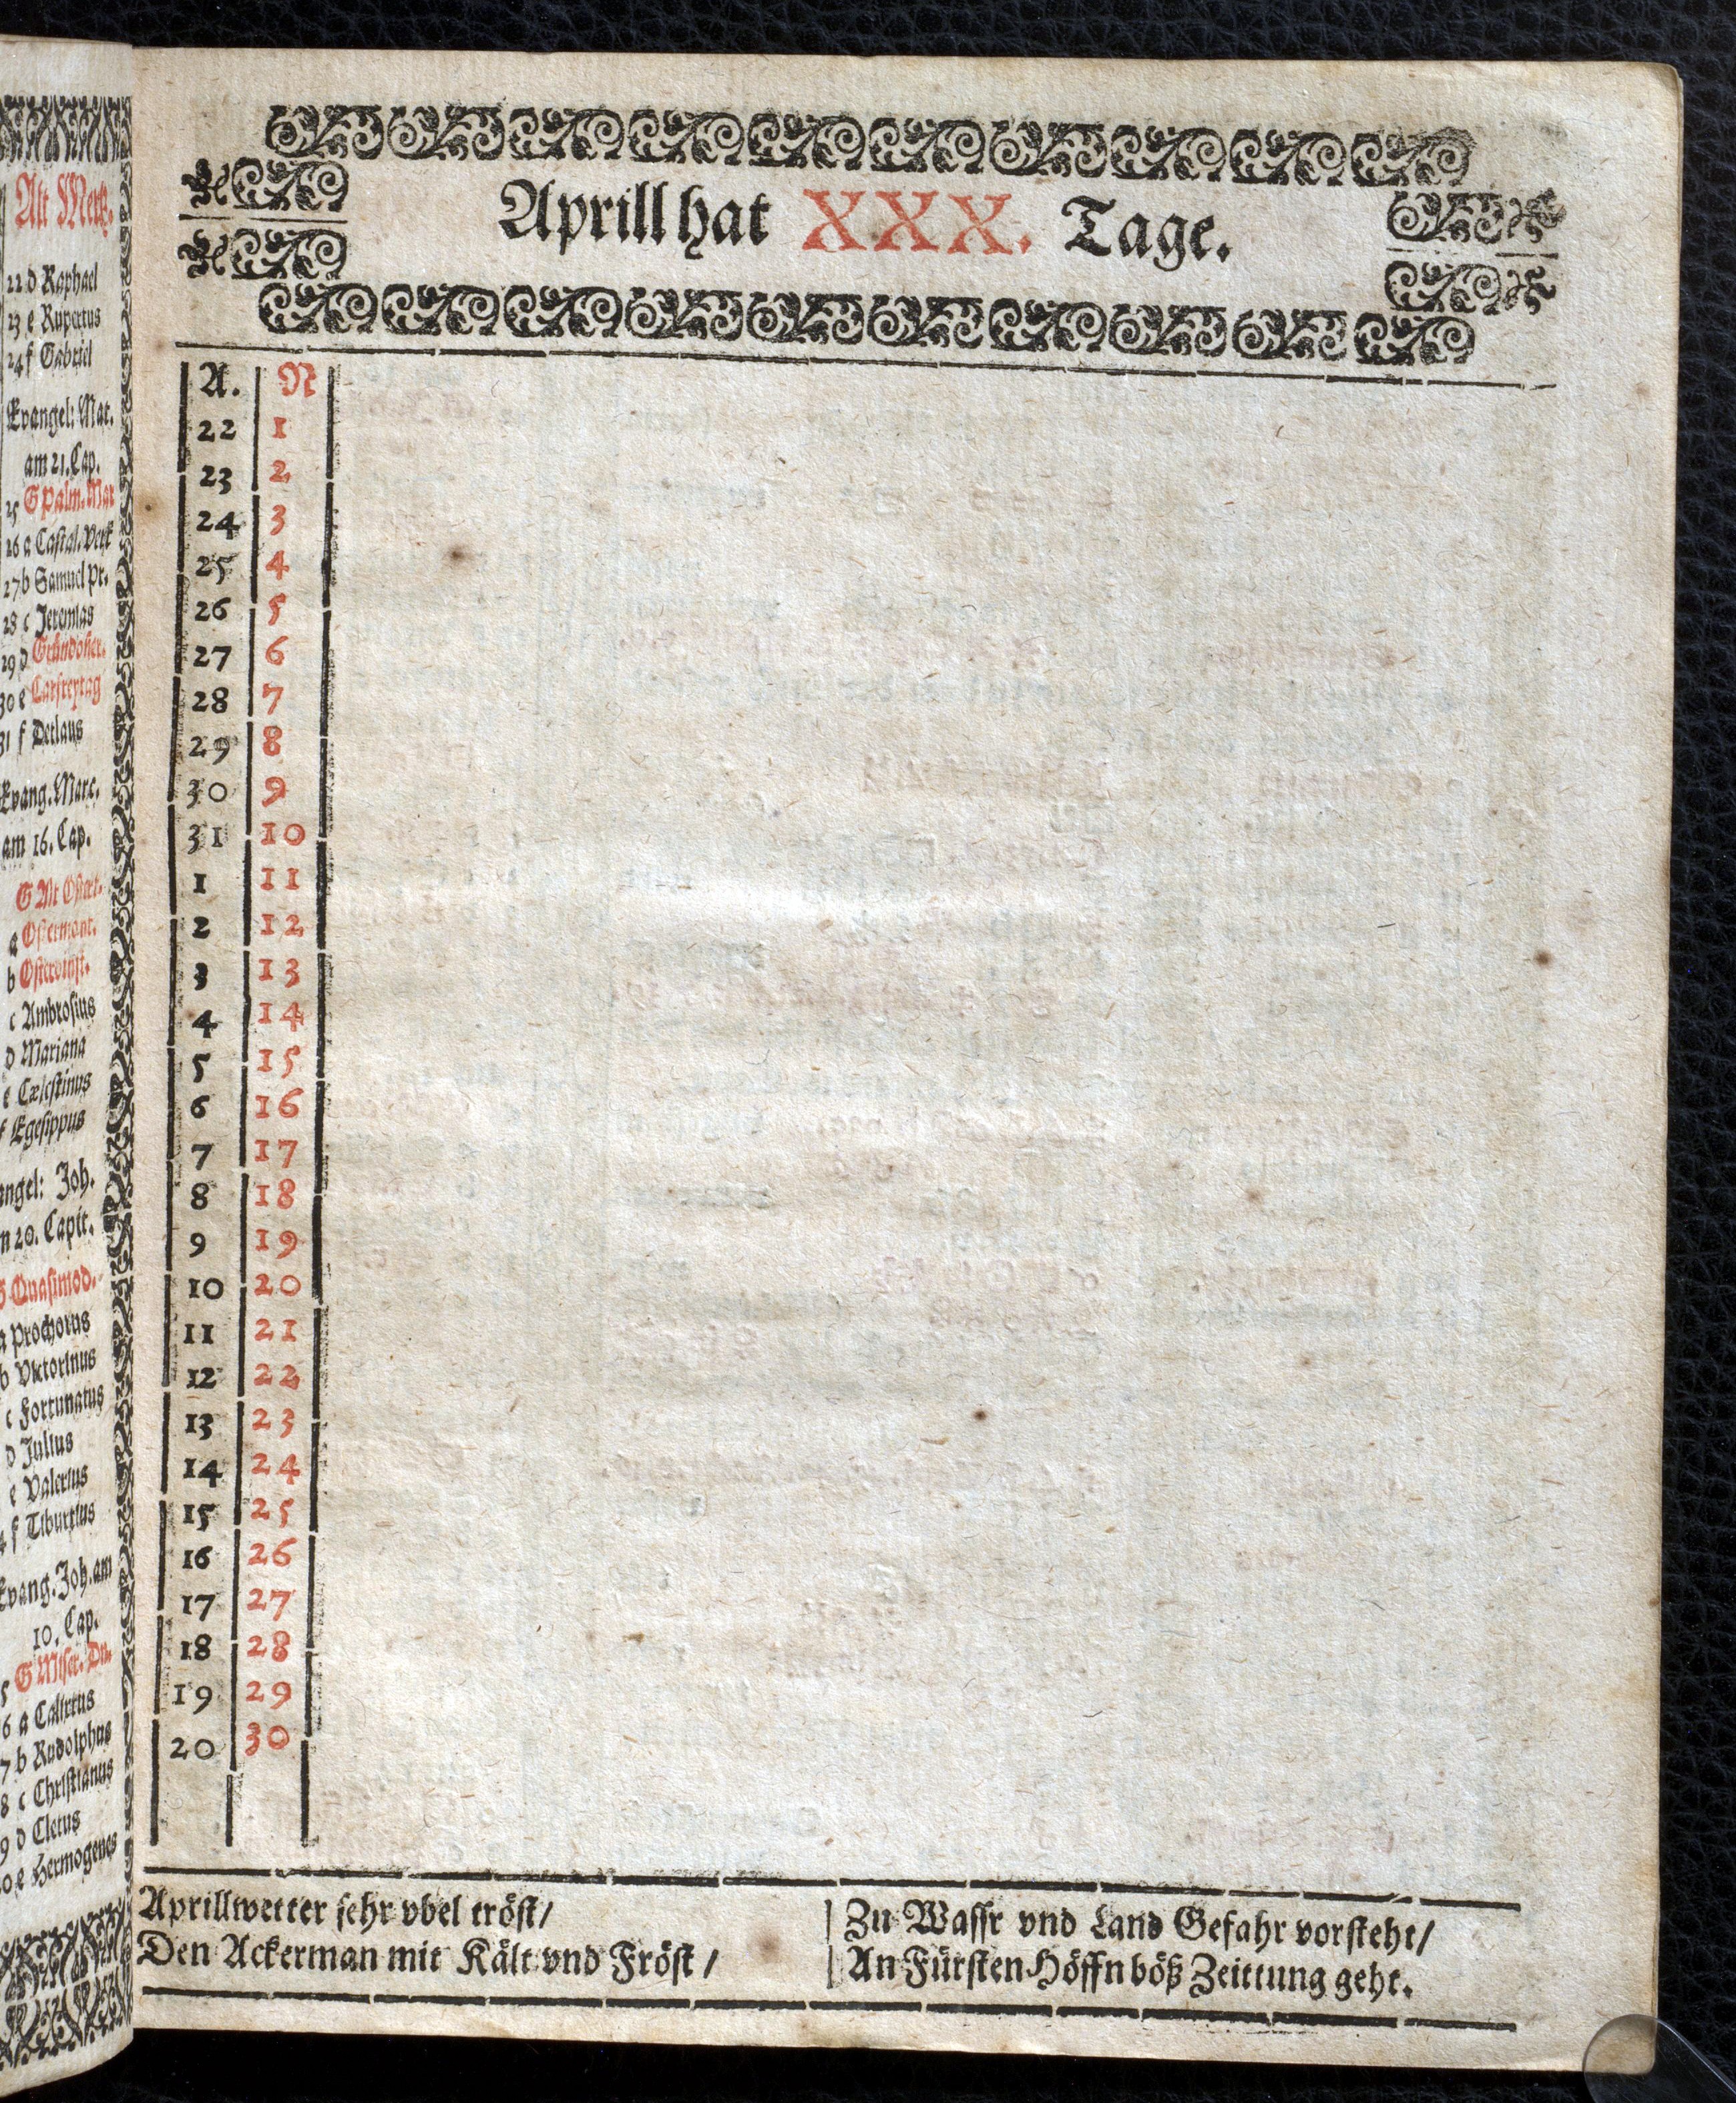 Alt Mertz.
22 d Raphael
23 e Rupertus
24 f Gabriel
Evangel: Mat.
am 21. Cap.
25 G Palm. Mar
26 a Castal.
27 b Samuel pr.
28 c Jeremias
29 d Gründoner.
30 e Carfreytag
31 f Detlaus
Evang. Marc.
am 16. Cap.
G Alt Ostert.
a Ostermont.
b Osterdinst.
c Ambrosius
d Mariana
e Cælestinus
f Egesippus
angel: Joh.
m 20. Capit.
G Quasimod.
a Prochorus
b Victorinus
c Fortunatus
d Julius
e Valerius
4 f Tiburtius
Evang. Joh. am
10. Cap.
5 G Miser. Dn.
6 a Calixtus
7 b Rudolphus
8 c Christianus
9 d Cletus
0 e Hermogenes
Aprill hat XXX. Tage.
A. N
22 1
23 2
24 3
25 4
26 5
27 6
28 7
29 8
30 9
31 10
1 11
2 12
3 13
4 14
5 15
6 16
7 17
8 18
9 19
10 20
11 21
12 22
13 23
14 24
15 25
16 26
17 27
18 28
19 29
20 30
Aprillwetter sehr vbel tröst/
Den Ackerman mit Kält vnd Fröst/
Zu Wassr vnd Land Gefahr vorsteht/
An Fürsten Höffn böß Zeittung geht.